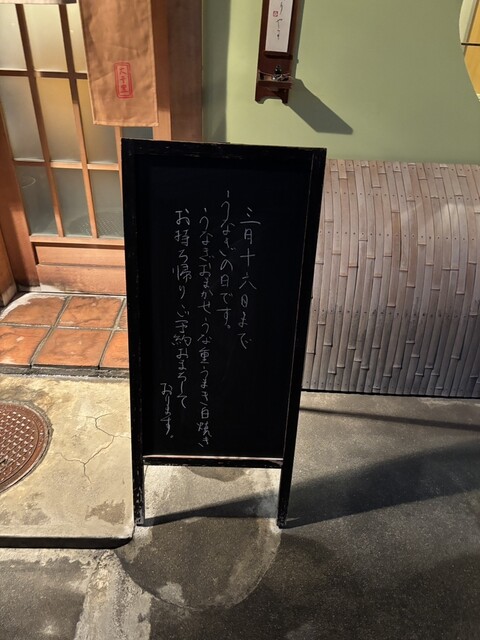 三月十六日まで
うなぎの日です。
うなぎおまかせ・うな重・うまき・白焼き
お持ち帰りご予約おまちして
おります。